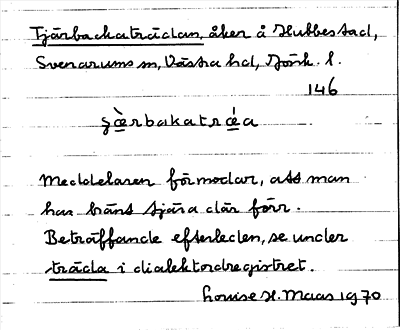 Tjärbackaträdan, åker å Hubbestad,
Svenarums sn, Västra hd, Jönk. l.
146
ʂæ̀rbakatræ̀a
Meddelaren förmodar, att man
har bränt tjära där förr.
Beträffande efterleden, se under
träda i dialektordregistret.
Louise H. Maas 1970